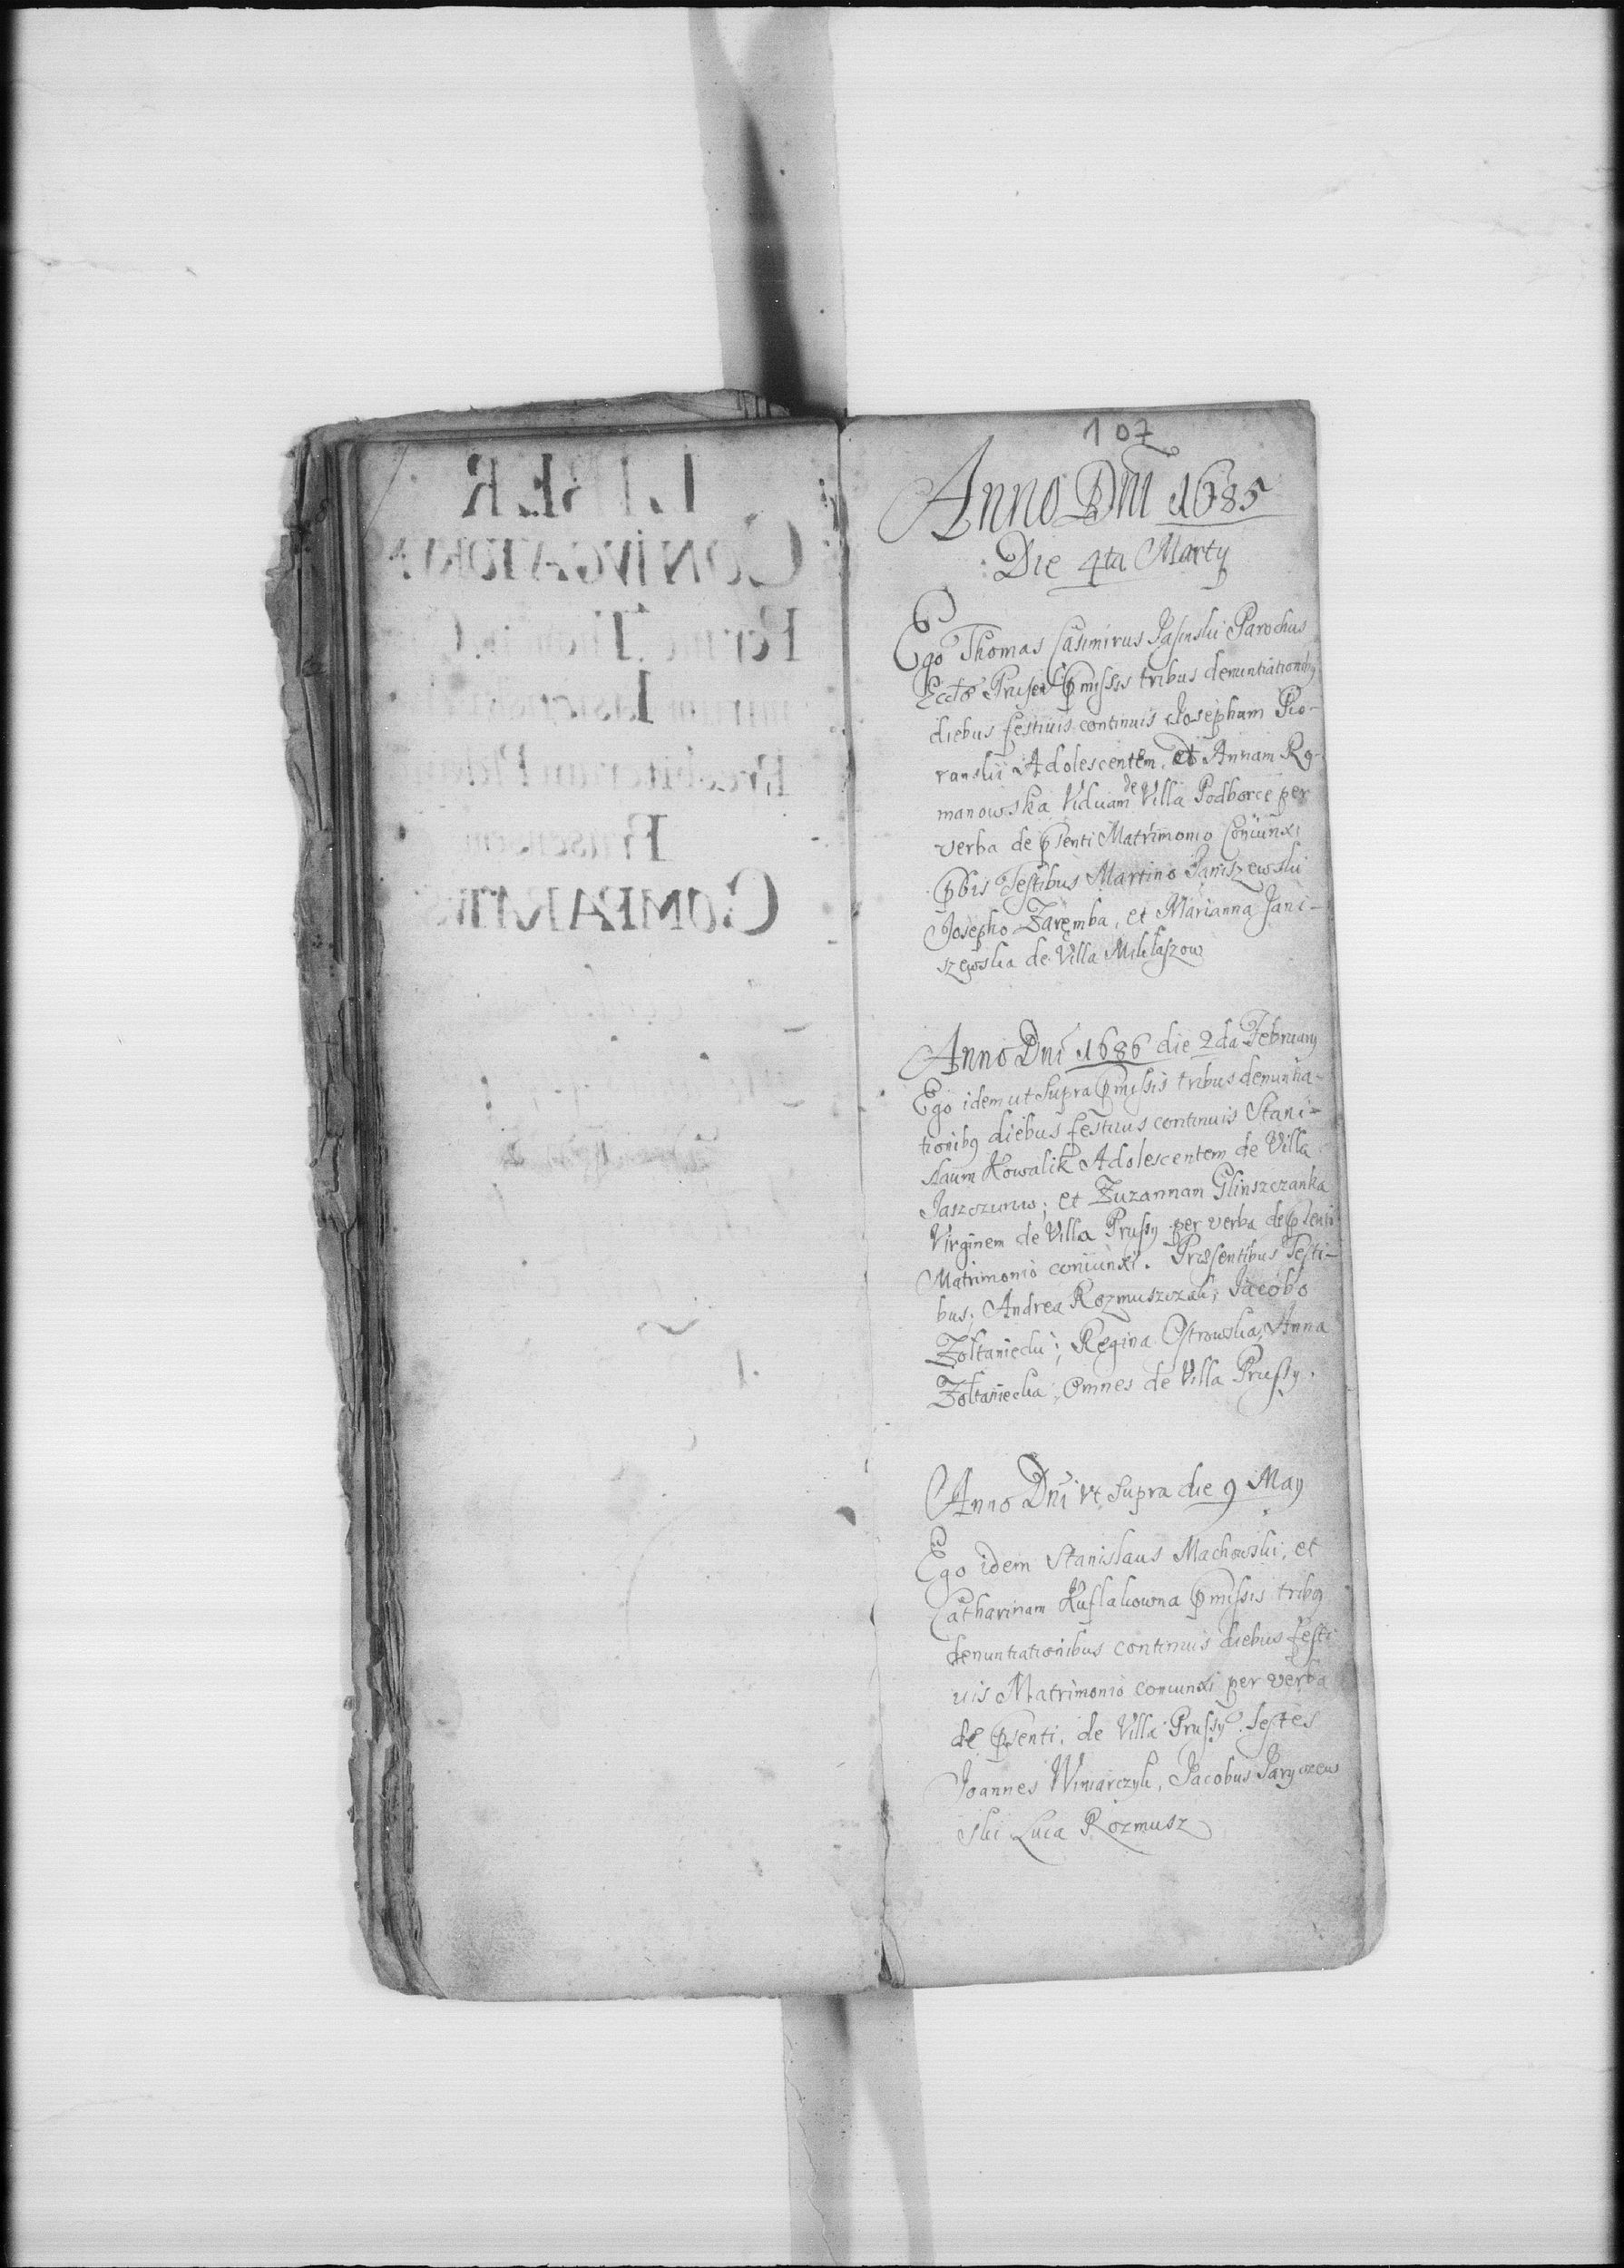 LIBER
CONIVGATORUM
Presbiterum Plebanum
Prusensem
COMPARATUS
107
Anno Dni 1685
Die 4ta Martÿ
Ego Thomas Casimirus Jasinski Parochus
Eccłæ Prusen p̄missis tribus denuntiationibꝫ
diebus festiuis continuis Josephum Pio-
ranskii Adolescentem, et Annam Ro-
manowska Viduam de Villa Podborce per
verba de p̄senti Matrimonio Coniunxi
p̄bis Testibus Martino Janiszewski
Josepho Zaręmba, et Marianna Jani-
szewska de Villa Mikłaszow
Anno Dni 1686 die 2da Februarÿ
Ego idem ut supra p̄missis tribus denuntia-
tionibꝫ diebus festiuis continuis Stani-
slaum Kowalik Adolescentem de Villa
Jaszczurow; et Zuzannam Glinszczanka
Virginem de Villa Prussy per verba de p̄senti
Matrimonio coniunxi. Præsentibus Testi-
bus; Andrea Rozmuszczak; Jacobo
Zołtaniecki; Regina Ostrowska, Anna
Zołtaniecka, Omnes de Villa Prussy.
Anno Dni vt supra die 9 May
Ego idem Stanislaus Machowski, et
Catharinam Kuslakowna p̄missis tribꝫ
denuntiationibus continuis diebus festi
uis Matrimonio coniunxi per verba
de p̄senti, de Villa Prussy. Testes
Joannes Winiarczyk, Jacobus Jaryczew
ski Luca Rozmusz